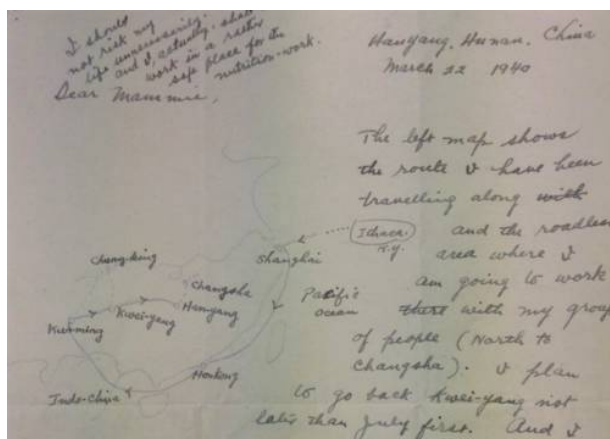 I should
not risk my
life unnecessarily.
and I, actually, shall
work in a rather
safe place for the
nutrition-work.
Hanyang, Hunan, China
March 22 1940
Dear Mammie,
The left map shows
the route I have been
travelling along with
and the roadless
area where I
am going to work
there with my group
of people (North to
Changsha). I plan
to go back Kwei-yang not
later than July first. And I
Ithaca.
N.Y.
Shanghai
Chung-king
Changsha
Hanyang
Kwei-yang
Kun-ming
Pacific
ocean
Honkong
Indo-China